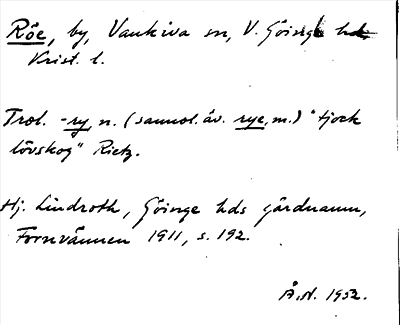 Röe, by, Vankiva sn, V. Göinge hd
Krist. l.
Trol. -ry, n. (sannol. äv. rye, m.) "tjock
lövskog" Rietz.
Hj. Lindroth, Göinge hds gårdnamn,
Fornvännen 1911, s. 192.
Å.N. 1952.